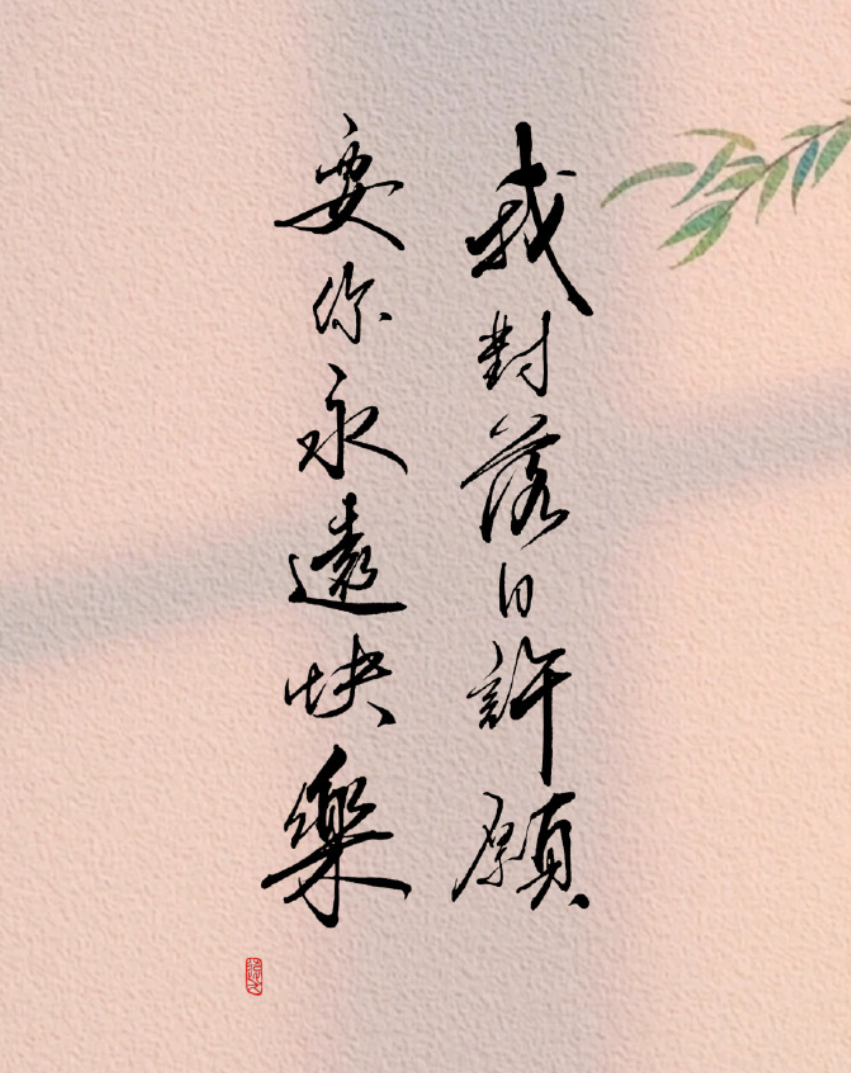 我對落日許願
要你永遠快樂